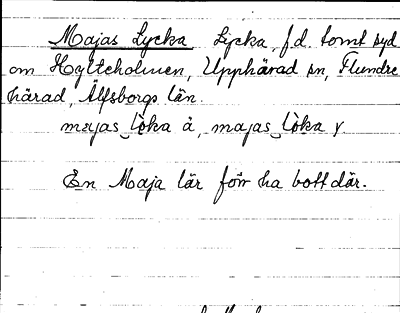 Majas Lycka Lycka, f.d. tomt syd
om Hylteholmen, Upphärad sn, Flundre
härad, Älfsborgs län.
majas lòka å, majas lòka y
En Maja lär förr ha bott där.